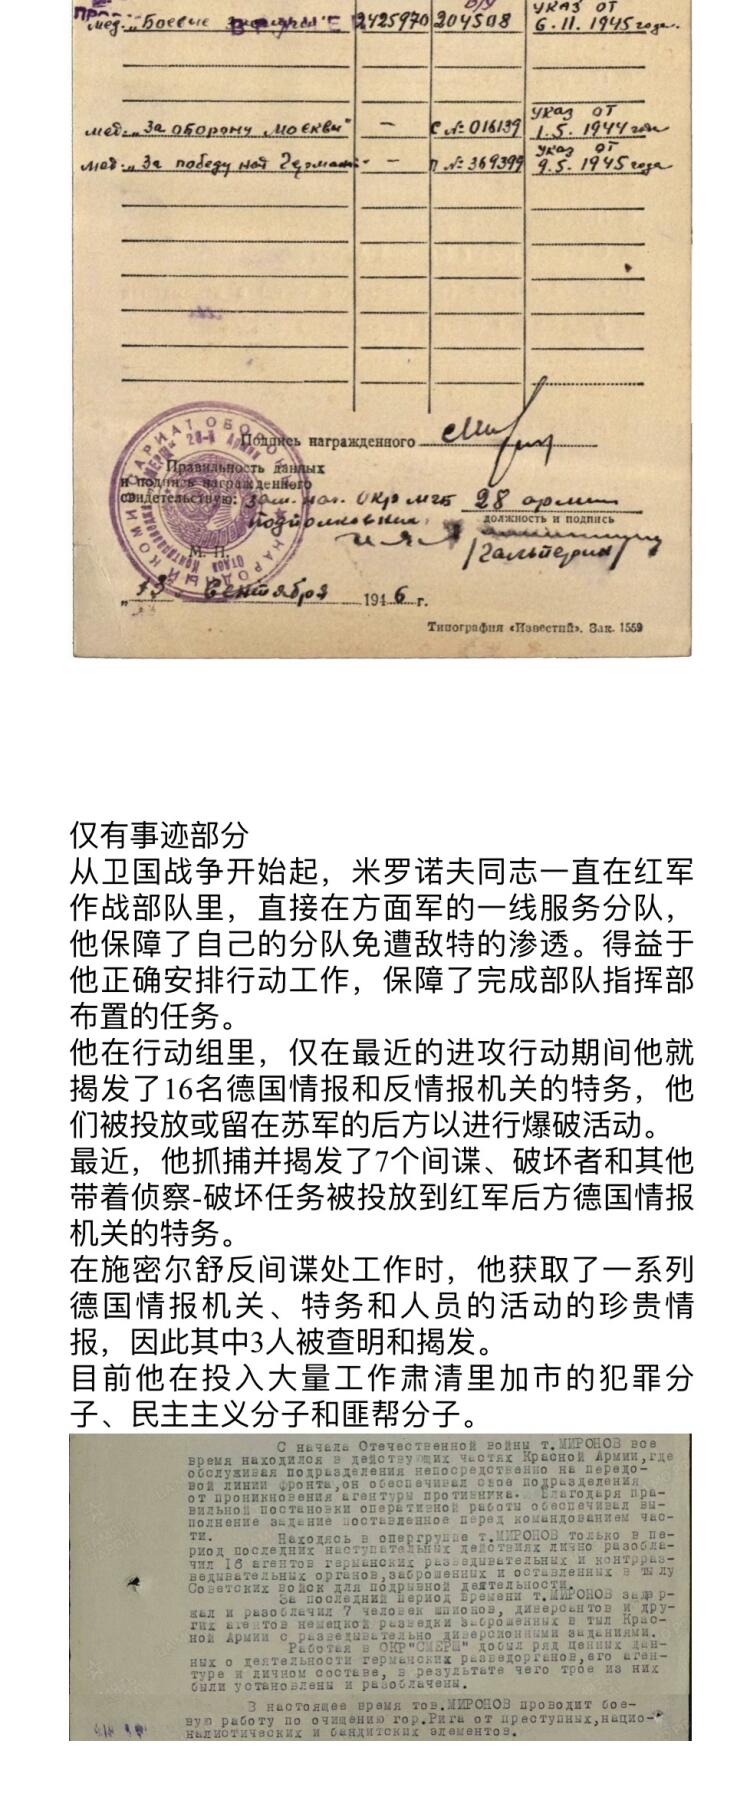 мед. „Боевые заслуги" 2425970 204508 УКАЗ ОТ
6.11.1945 года.
мед. „За оборону Москвы" — С № 016139 УКАЗ ОТ
1.5.1944 года
мед. „За победу над Герман. — П № 369399 УКАЗ ОТ
9.5.1945 года
Подпись награжденного
Правильность данных
и подпись награжденного
свидетельствую: зам. нач. ОКР МГБ 28 армии
подполковник
должность и подпись
/Гальперин/
М. П.
НАРОДНЫЙ КОМИССАРИАТ ОБОРОНЫ
28-й АРМИИ
„13" Сентября 1946 г.
Типография «Известий». Зак. 1559
仅有事迹部分
从卫国战争开始起，米罗诺夫同志一直在红军
作战部队里，直接在方面军的一线服务分队，
他保障了自己的分队免遭敌特的渗透。得益于
他正确安排行动工作，保障了完成部队指挥部
布置的任务。
他在行动组里，仅在最近的进攻行动期间他就
揭发了16名德国情报和反情报机关的特务，他
们被投放或留在苏军的后方以进行爆破活动。
最近，他抓捕并揭发了7个间谍、破坏者和其他
带着侦察-破坏任务被投放到红军后方德国情报
机关的特务。
在施密尔舒反间谍处工作时，他获取了一系列
德国情报机关、特务和人员的活动的珍贵情
报，因此其中3人被查明和揭发。
目前他在投入大量工作肃清里加市的犯罪分
子、民主主义分子和匪帮分子。
С начала Отечественной войны т.МИРОНОВ все
время находился в действующих частях Красной Армии,где
обслуживая подразделения непосредственно на передо-
вой линии фронта,он обеспечивал свое подразделения
от проникновения агентуры противника. Благодаря пра-
вильной постановки оперативной работы обеспечивал вы-
полнение задание поставленное перед командованием час-
ти.
Находясь в опергруппе т.МИРОНОВ только в пе-
риод последних наступательных действиях лично разобла-
чил 16 агентов германских разведывательных и контрраз-
ведывательных органов,заброшенных и оставленных в тылу
Советских войск для подрывной деятельности.
За последний период времени т.МИРОНОВ задер-
жал и разоблачил 7 человек шпионов, диверсантов и дру-
гих агентов немецкой разведки заброшенных в тыл Крас-
ной Армии с разведывательно диверсионными заданиями.
Работая в ОКР"СМЕРШ" добыл ряд ценных дан-
ных о деятельности германских разведорганов,его аген-
туре и личном составе, в результате чего трое из них
были установлены и разоблачены.
В настоящее время тов.МИРОНОВ проводит бое-
вую работу по очищению гор.Рига от преступных,нацио-
налистических и бандитских элементов.